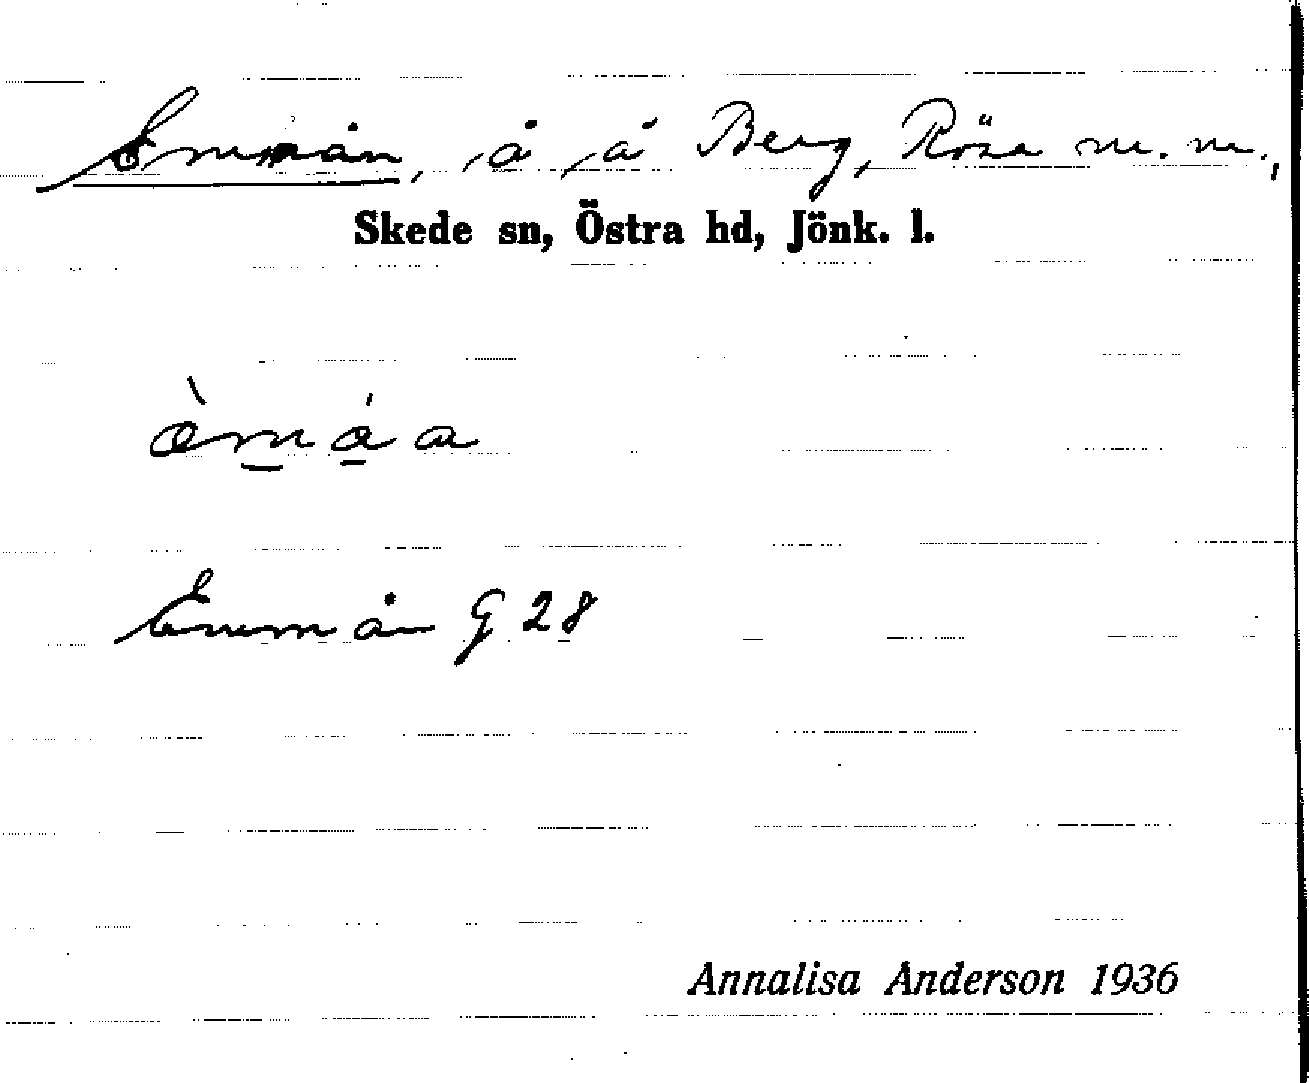 Emån, å, å Berg, Rösa m. m.,
Skede sn, Östra hd, Jönk. l.
Emmån G 28
Annalisa Anderson 1936